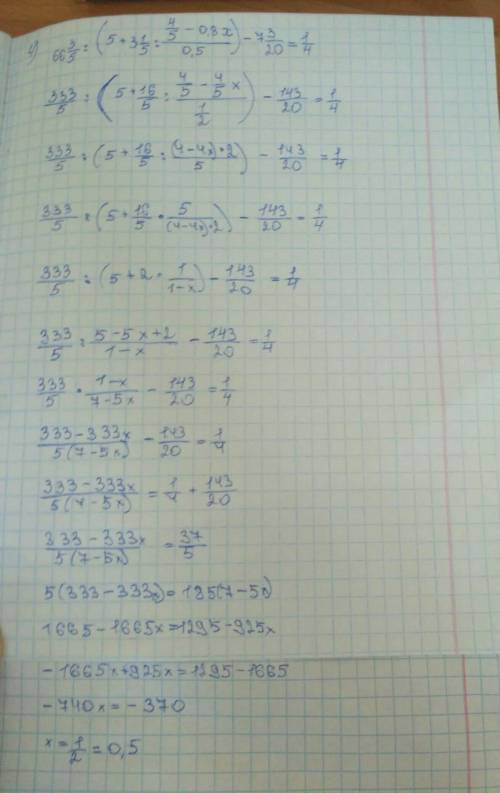 1) 66 3/5 : (5 + 3 1/5 : (4/5 - 0,8x)/0,5) - 7 3/20 = 1/4
333/5 : (5 + 16/5 : (4/5 - 4/5 x)/(1/2)) - 143/20 = 1/4
333/5 : (5 + 16/5 : (4-4x)·2/5) - 143/20 = 1/4
333/5 : (5 + 16/5 · 5/((4-4x)·2)) - 143/20 = 1/4
333/5 : (5 + 2 · 1/(1-x)) - 143/20 = 1/4
333/5 : (5-5x+2)/(1-x) - 143/20 = 1/4
333/5 · (1-x)/(7-5x) - 143/20 = 1/4
(333-333x)/(5(7-5x)) - 143/20 = 1/4
(333-333x)/(5(7-5x)) = 1/4 + 143/20
(333-333x)/(5(7-5x)) = 37/5
5(333-333x) = 185(7-5x)
1665-1665x=1295-925x
-1665x+925x=1295-1665
-740x=-370
x = 1/2 = 0,5